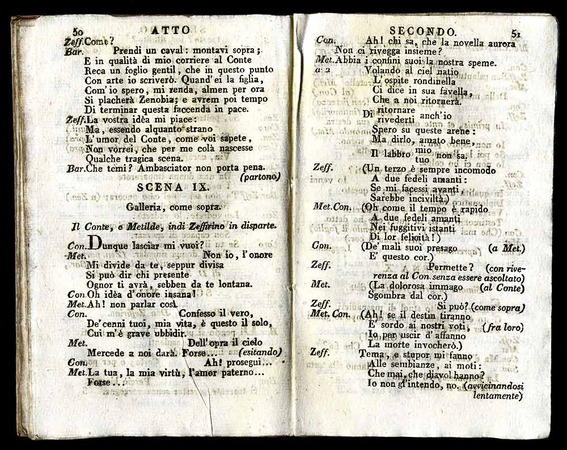 50 ATTO
Zeff. Come?
Bar. Prendi un caval: montavi sopra;
E in qualità di mio corriere al Conte
Reca un foglio gentil, che in questo punto
Con arte io scriverò. Quand'ei la figlia,
Com'io spero, mi renda, almen per ora
Si placherà Zenobia; e avrem poi tempo
Di terminar questa faccenda in pace.
Zeff. La vostra idèa mi piace:
Ma, essendo alquanto strano
L'umor del Conte, come voi sapete,
Non vorrei, che per me colà nascesse
Qualche tragica scena.
Bar. Che temi? Ambasciator non porta pena.
(partono)
SCENA IX.
Galleria, come sopra.
Il Conte, e Metilde, indi Zeffirino in disparte.
Con. Dunque lasciar mi vuoi?
Met. Non io, l'onore
Mi divide da te, seppur divisa
Si può dir chi presente
Ognor ti avrà, sebben da te lontana.
Con. Oh idèa d'onore insana!
Met. Ah! non parlar così.
Con. Confesso il vero,
De' cenni tuoi, mia vita, è questo il solo,
Cui m'è grave ubbidir.
Met. Dell'opra il cielo
Mercede a noi darà. Forse... (esitando)
Con. Ah! prosegui...
Met. La tua, la mia virtù, l'amor paterno...
Forse...
SECONDO. 51
Con. Ah! chi sa, che la novella aurora
Non ci rivegga insieme?
Met. Abbia i confini suoi la nostra speme.
a 2 Volando al ciel natio
L'ospite rondinella
Ci dice in sua favella,
Che a noi ritornerà.
Di ritornare anch'io
rivederti
Spero su queste arene:
Ma dirlo, amato bene,
Il labbro mio non sa.
tuo
Zeff. (Un terzo è sempre incomodo
A due fedeli amanti:
Se mi facessi avanti,
Sarebbe inciviltà.)
Met. Con. (Oh come il tempo è rapido
A due fedeli amanti
Nei fuggitivi istanti
Di lor felicità!)
Con. (De' mali suoi presago (a Met.)
E' questo cor.)
Zeff. Permette? (con rive-
renza al Con. senza essere ascoltato)
Met. (La dolorosa immago (al Conte)
Sgombra dal cor.)
Zeff. Si può? (come sopra)
Met. Con. (Ah! se il destin tiranno
E' sordo ai nostri voti, (fra loro)
Io per uscir d'affanno
La morte invocherò.)
Zeff. Tema, e stupor mi fanno
Alle sembianze, ai moti:
Che mai, che diavol hanno?
Io non gl'intendo, no. (avvicinandosi
lentamente)